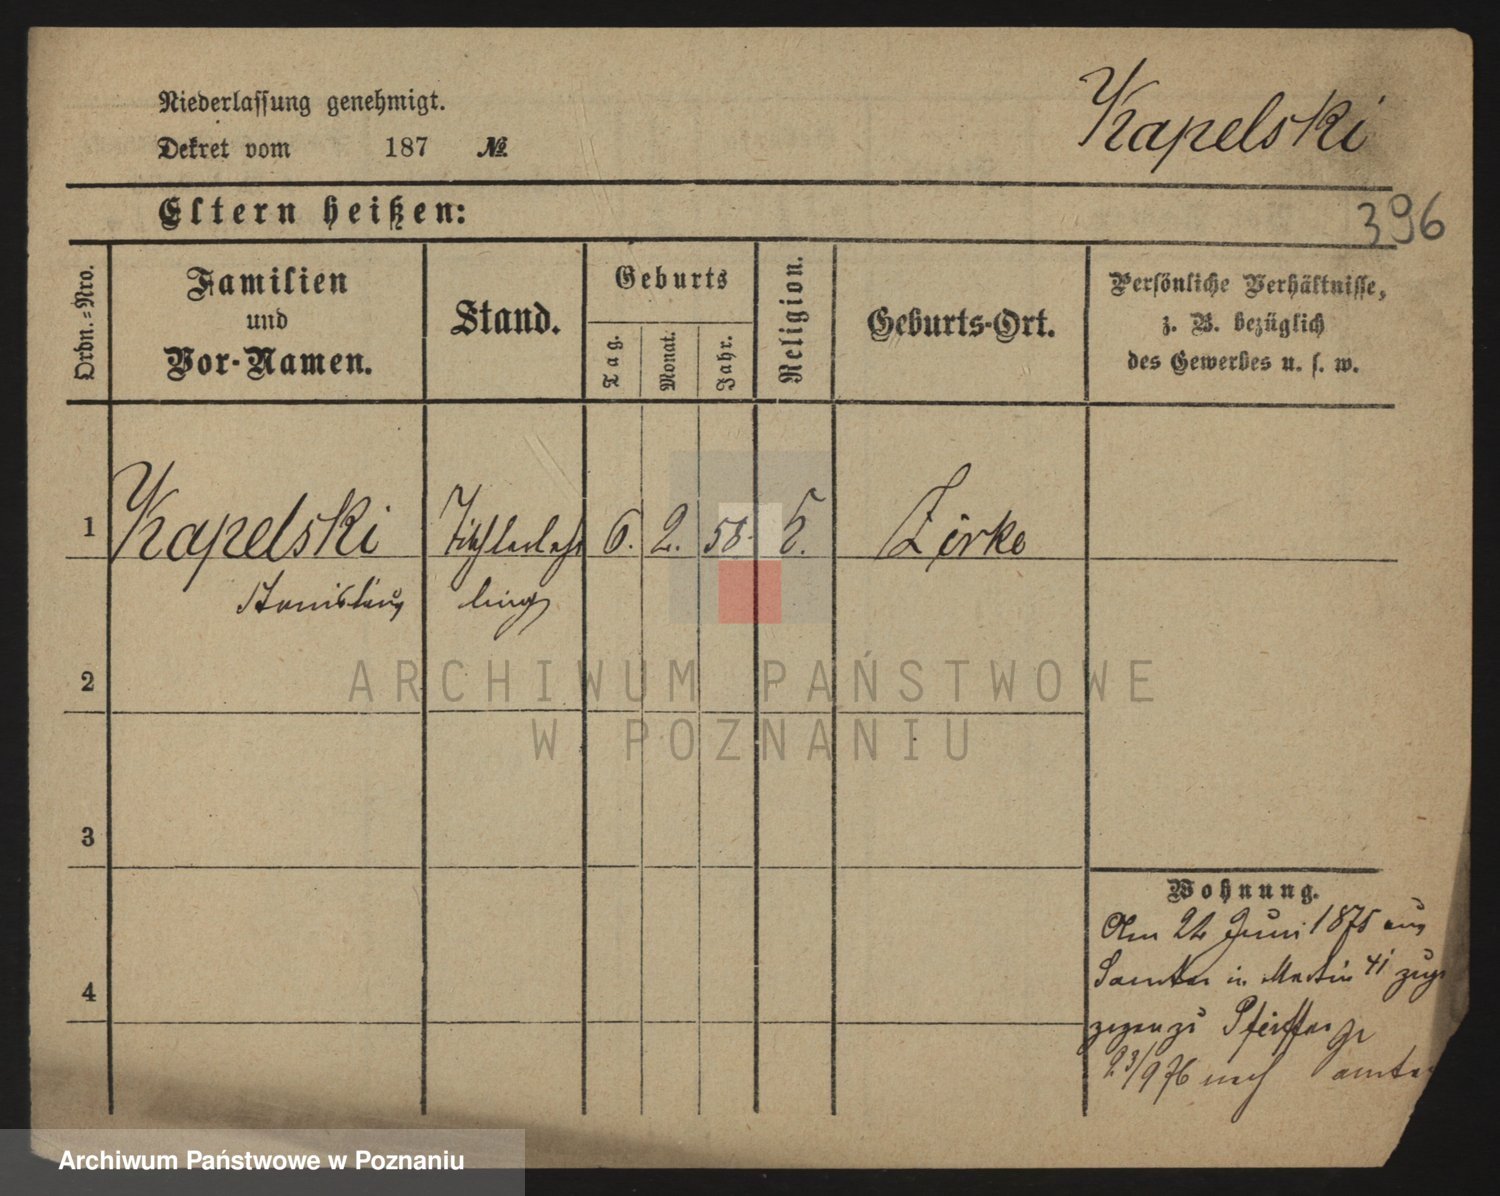 Niederlassung genehmigt.
Dekret vom 187 №
Kapelski
396
Eltern heißen:
Ordn.-Nro.
Familien
und
Vor-Namen.
Stand.
Geburts
Tag.
Monat.
Jahr.
Religion.
Geburts-Ort.
Persönliche Verhältnisse,
z. B. bezüglich
des Gewerbes u. s. w.
1 Kapelski Tischlerlehr 6. 2. 58. Zirke
Stanislaus ling
2
3
4
Wohnung.
Am 22 Juni 1875 aus
Samter in Martin 41 zuge
zogen zu Pfeiffer
23/9 76 nach Samter
ARCHIWUM PAŃSTWOWE
W POZNANIU
Archiwum Państwowe w Poznaniu